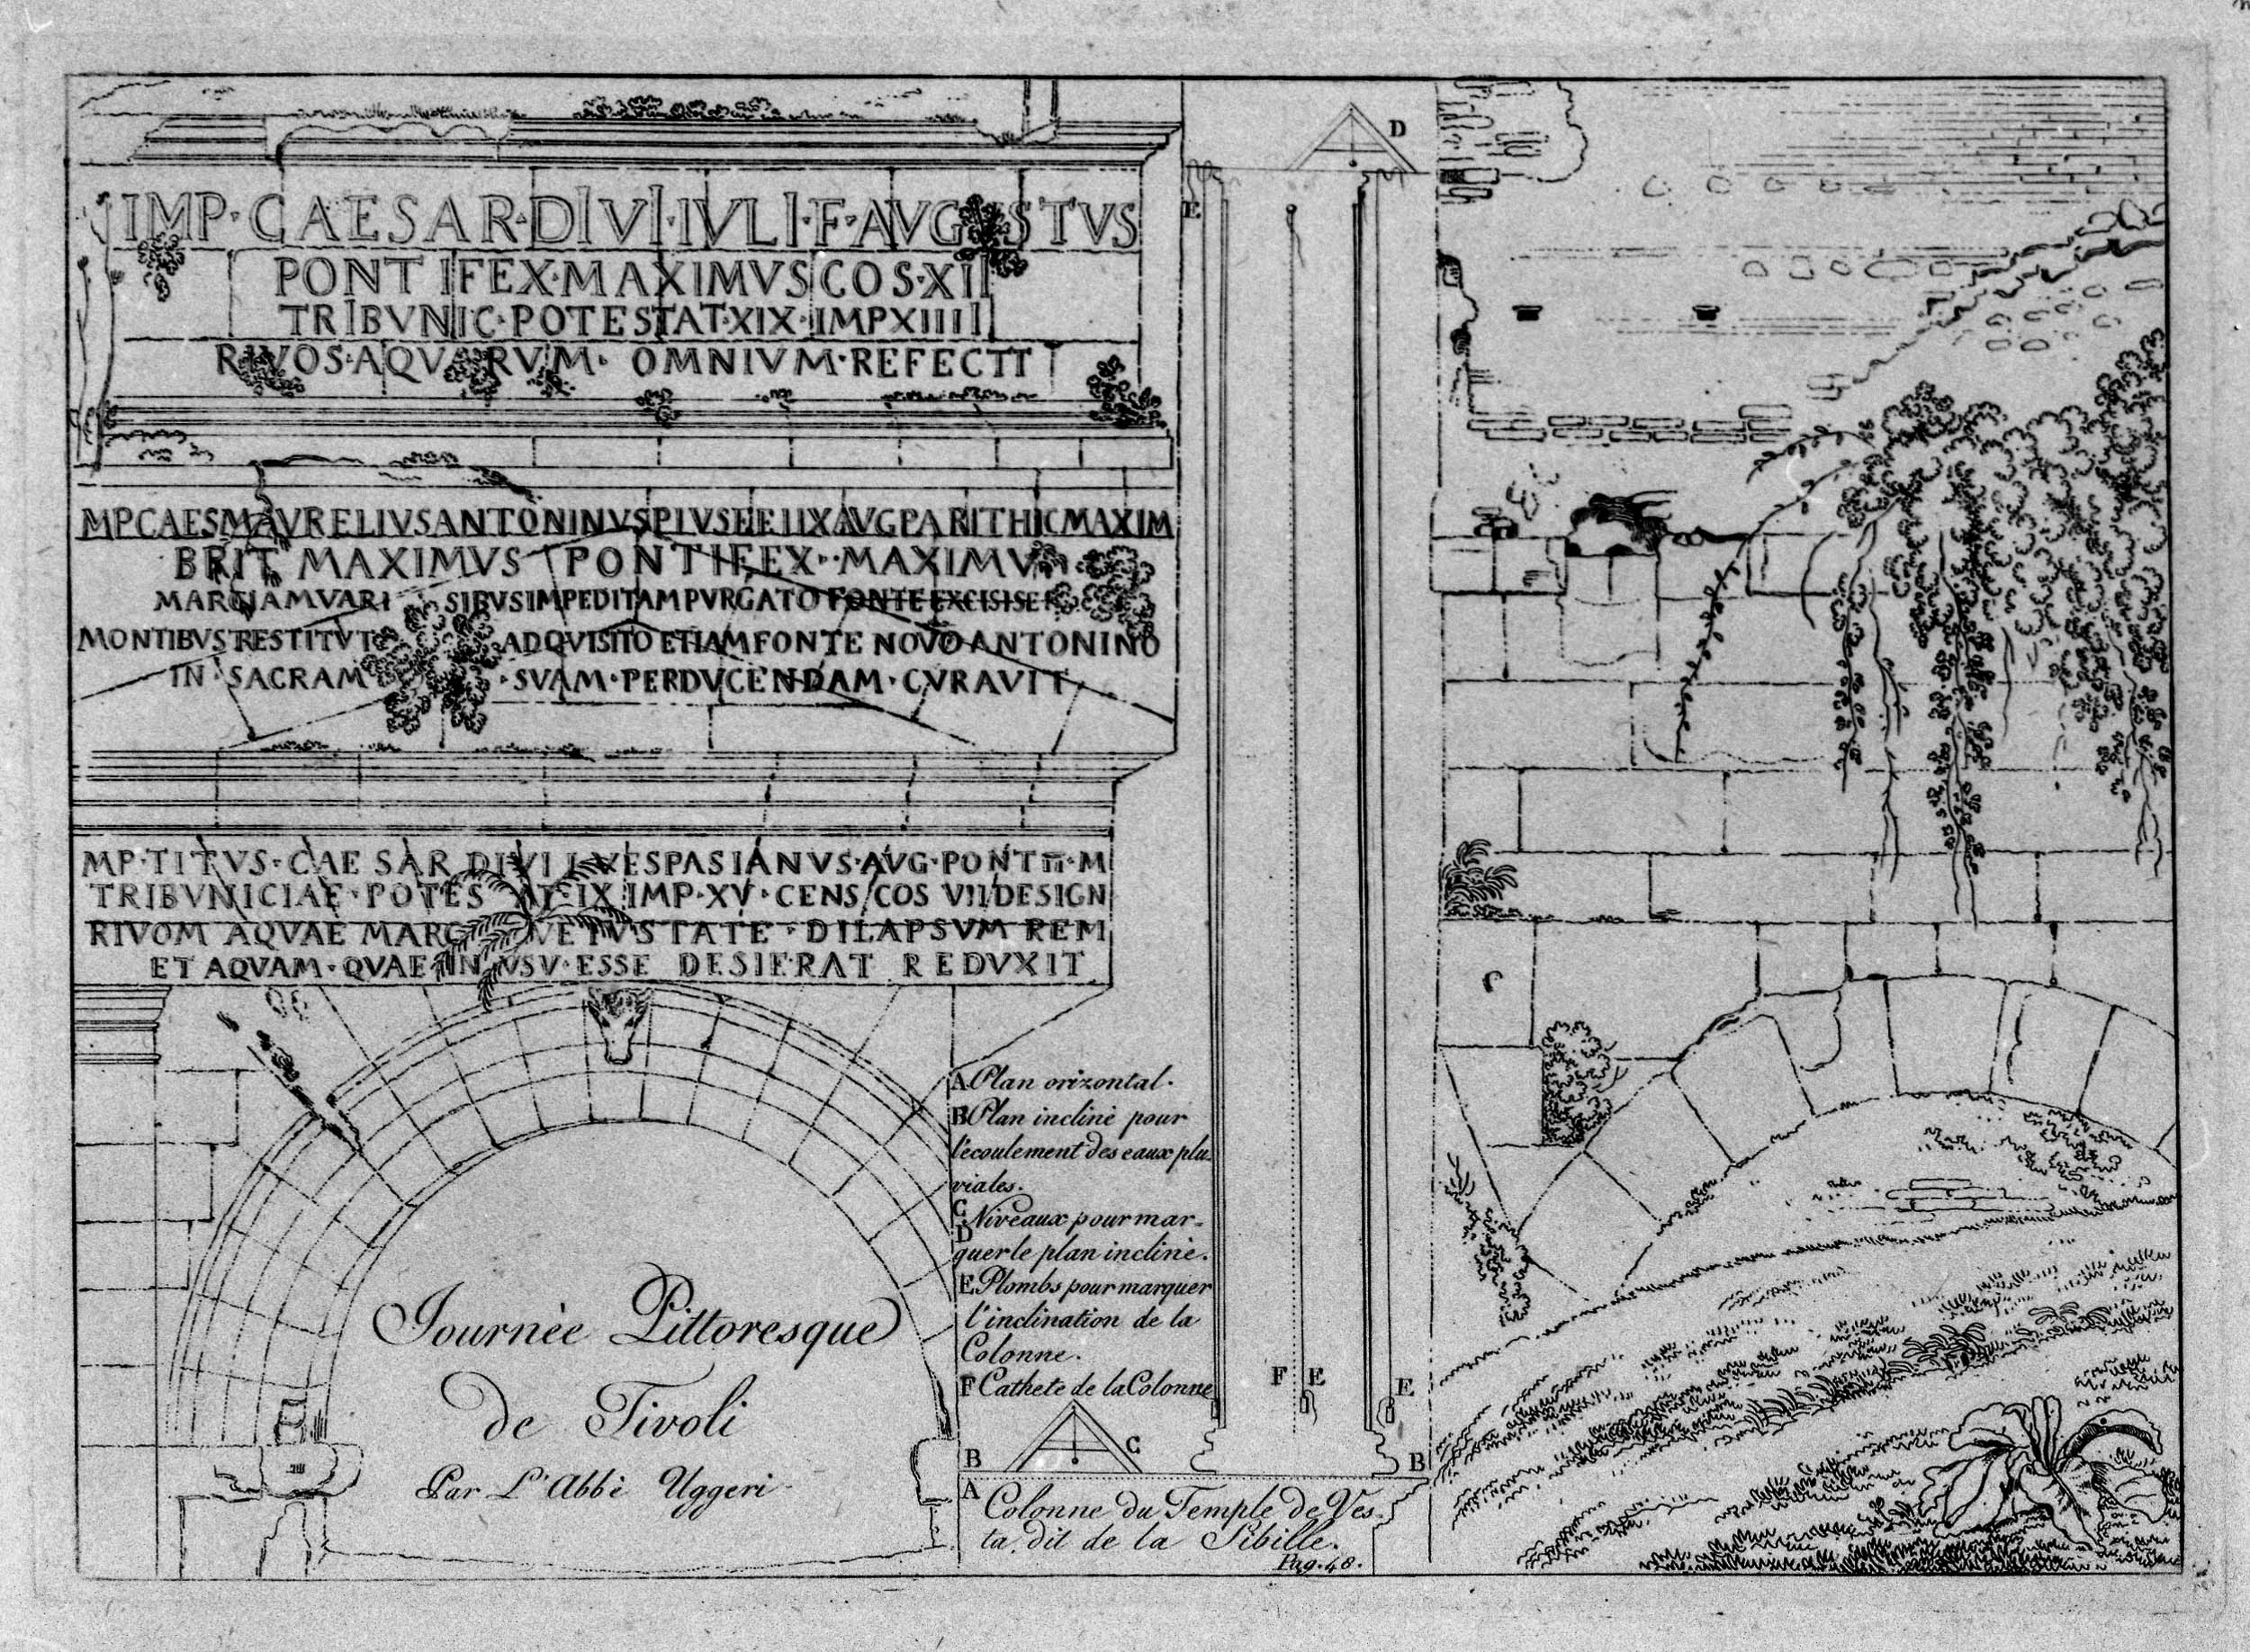 IMP·CAESAR·DIVI·IVLI·F·AVGVSTVS
PONTIFEX·MAXIMVS COS·XII
TRIBVNIC·POTESTAT·XIX·IMPXIIII
RIVOS·AQVARVM· OMNIVM·REFECIT
MPCAESMAVRELIVSANTONINVSPIVSFEIIXAVGPARITHICMAXIM
BRIT MAXIMVS PONTIFEX·MAXIMV
MARCIAMVARI SIBVSIMPEDITAMPVRGATO FONTE EXCISISE
MONTIBVS RESTITVT ADQVISITO ETIAM FONTE NOVO ANTONINO
IN·SACRAM ·SVAM·PERDVCENDAM·CVRAVIT
MP·TITVS·CAESAR DIVI VESPASIANVS·AVG·PONTII·M
TRIBVNICIAE·POTES AT·IX IMP·XV·CENS COS VII DESIGN
RIVOM AQVAE MARC VETVSTATE·DILAPSVM REM
ET AQVAM·QVAE IN VSV·ESSE DESIERAT REDVXIT
Journèe Pittoresque
de Tivoli
Par L'Abbè Uggeri
A Plan orizontal.
B Plan incliné pour
l'écoulement des eaux plu-
viales.
C Niveaux pour mar-
D
quer le plan incliné.
E Plombs pour marquer
l'inclination de la
Colonne.
F Cathete de la Colonne
D
E
F E E
B C B
A
Colonne du Temple de Ves-
ta, dit de la Sibille.
Pag. 48.